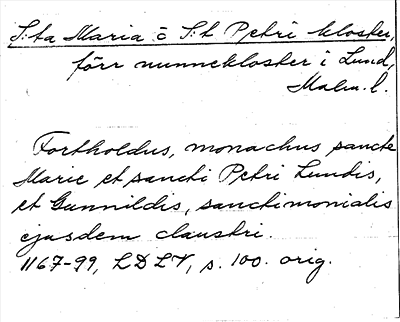 S:ta Maria o S:t Petri kloster,
förr nunnekloster i Lund,
Malm. l.
Fortholdus, monachus sancte
Marie et sancti Petri Lundis,
et Gunnildis, sanctimonialis
ejusdem claustri.
1167-99, LDLV, s. 100. orig.